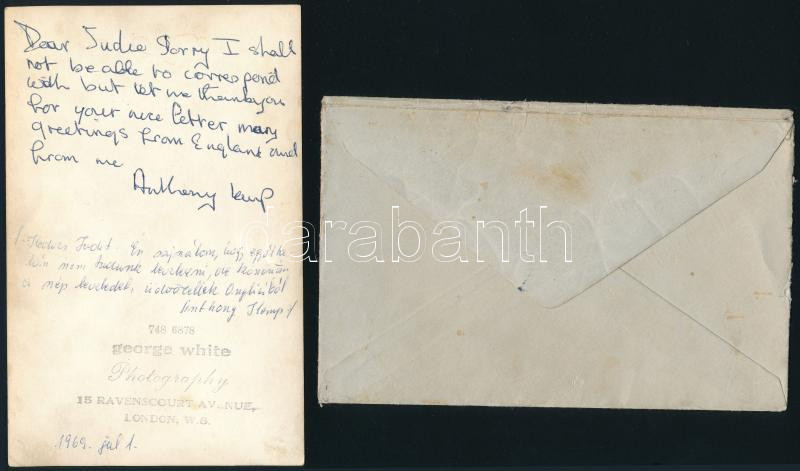 Dear Judie Sorry I shall
not be able to correspond
with but let me thankyou
for your nice letter many
greetings from England and
from me
Anthony Kemp
Judit. Én sajnálom, hogy
nem tudunk levelezni, de
a nép leveledet, üdvözellek Angliából
Anthony Kemp
748 6878
george white
Photography
15 RAVENSCOURT AVENUE,
LONDON, W.6.
1969. júl 1.
darabanth